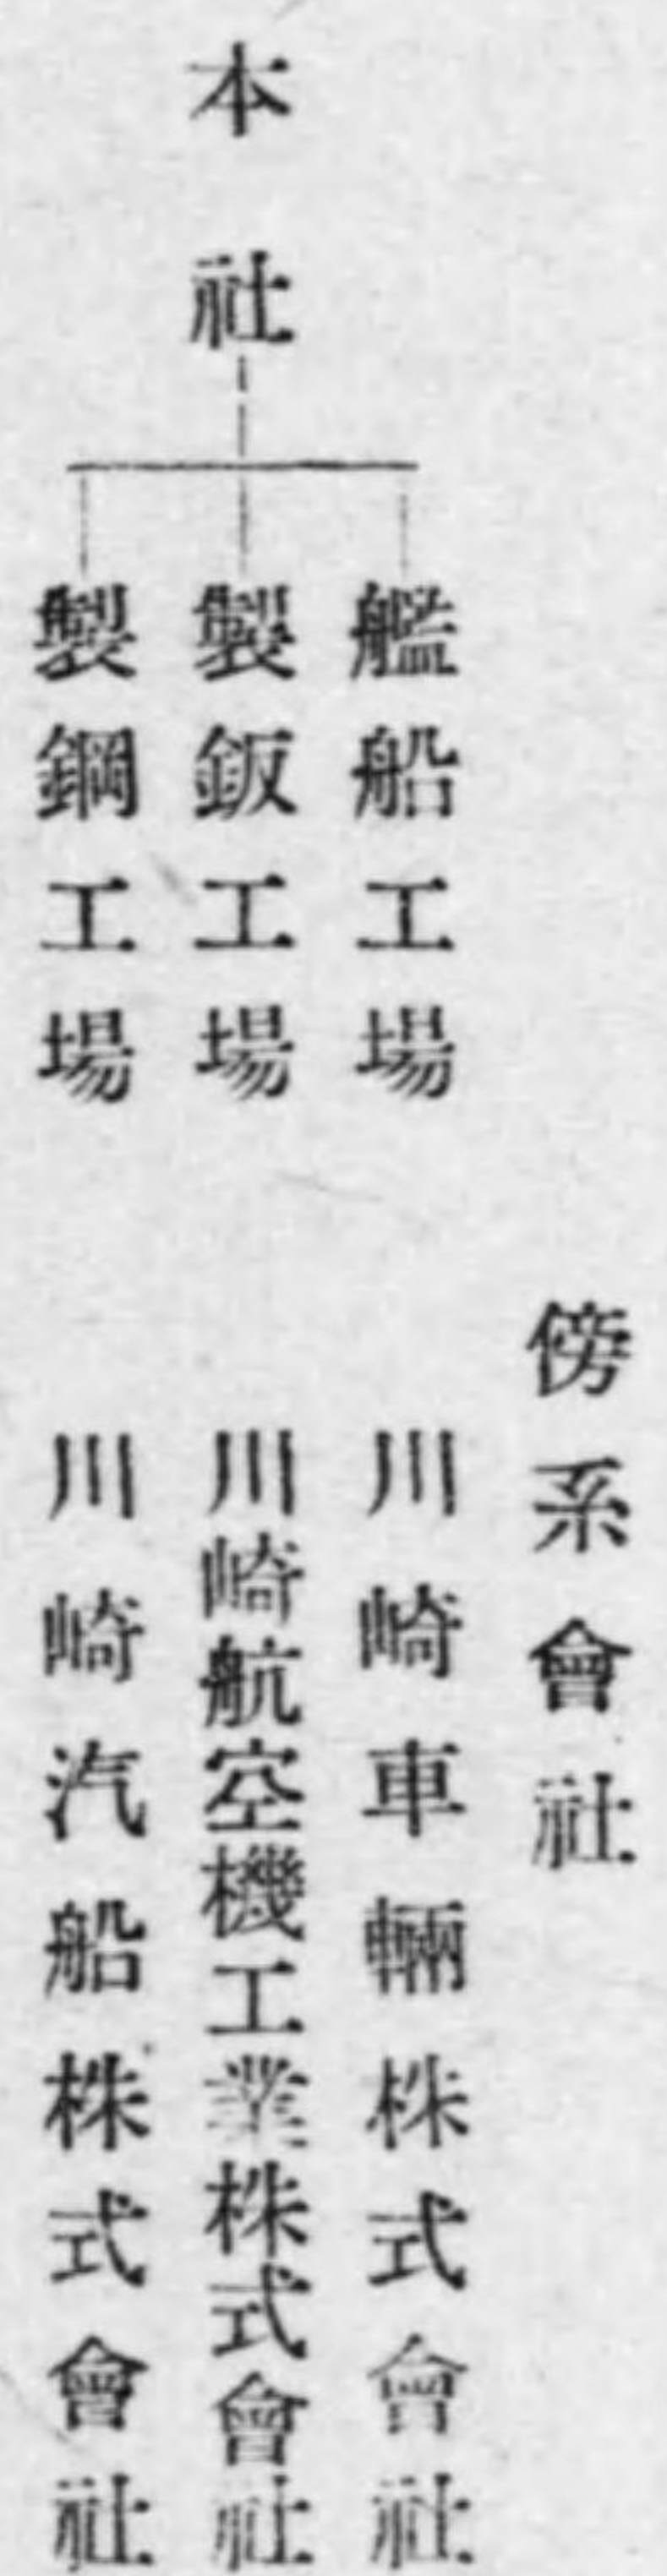 本社
艦船工場
製鈑工場
製鋼工場
傍系會社
川崎車輛株式會社
川崎航空機工業株式會社
川崎汽船株式會社